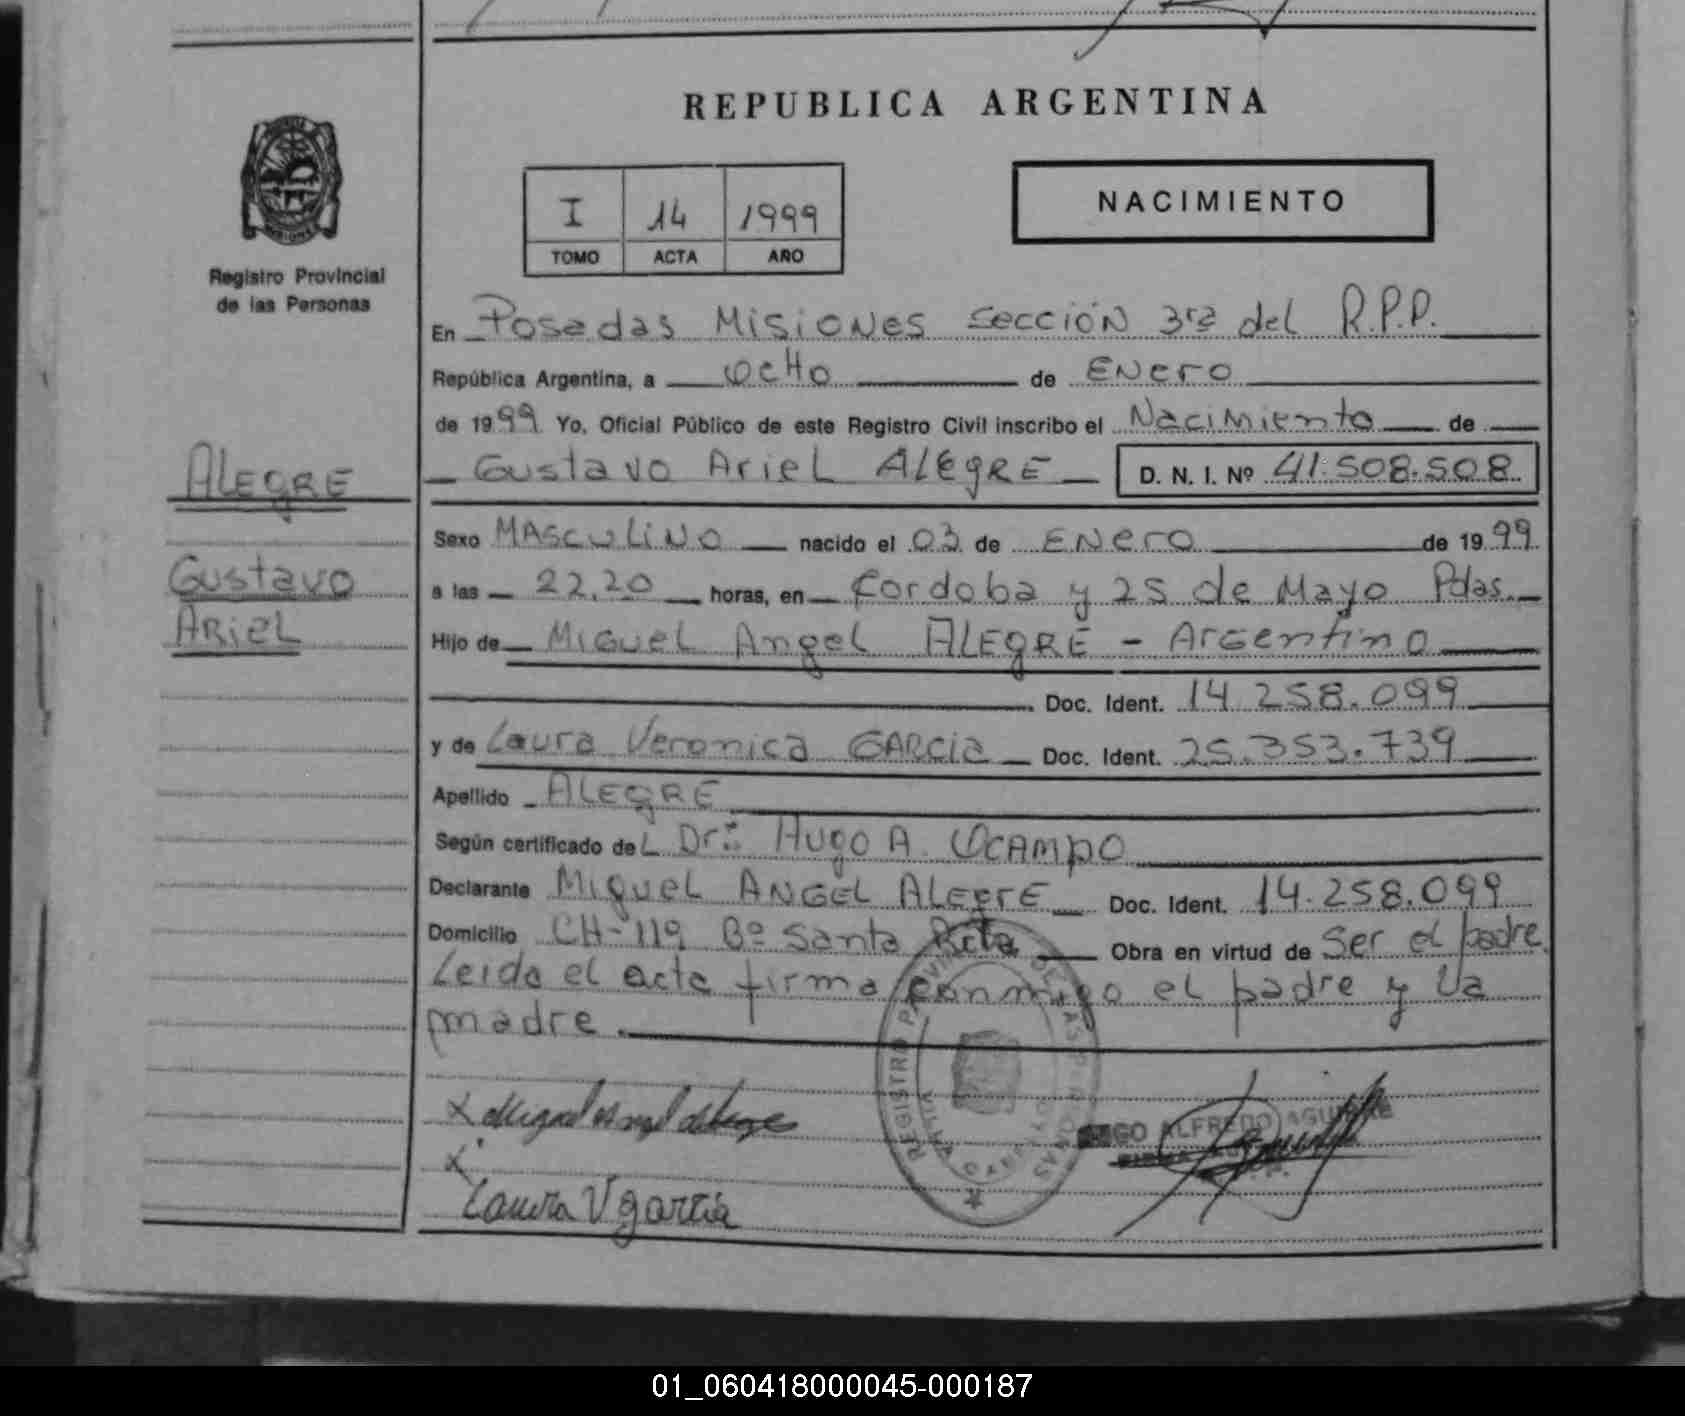 REPUBLICA ARGENTINA
NACIMIENTO
I 14 1999
TOMO ACTA AÑO
Registro Provincial
de las Personas
En Posadas Misiones sección 3ra del R.P.P.
República Argentina, a ocho de Enero
de 1999 Yo, Oficial Público de este Registro Civil inscribo el Nacimiento de
Gustavo Ariel ALEGRE D. N. I. Nº 41.508.508
ALEGRE
Gustavo
Ariel
Sexo MASCULINO nacido el 03 de ENERO de 1999
a las 22.20 horas, en Cordoba y 25 de Mayo Pdas.
Hijo de Miguel Angel ALEGRE - Argentino
Doc. Ident. 14.258.099
y de Laura Veronica GARCIA Doc. Ident. 25.353.739
Apellido ALEGRE
Según certificado del Dr.: Hugo A. OCAMPO
Declarante Miguel ANGEL ALEGRE Doc. Ident. 14.258.099
Domicilio CH-119 Bº Santa Rita Obra en virtud de ser el padre
Leida el acta firma conmigo el padre y la
madre.
x Miguel Angel Alegre
x
Laura V Garcia
REGISTRO PROVINCIAL DE LAS PERSONAS
ALFREDO AGUIRRE
01_060418000045-000187